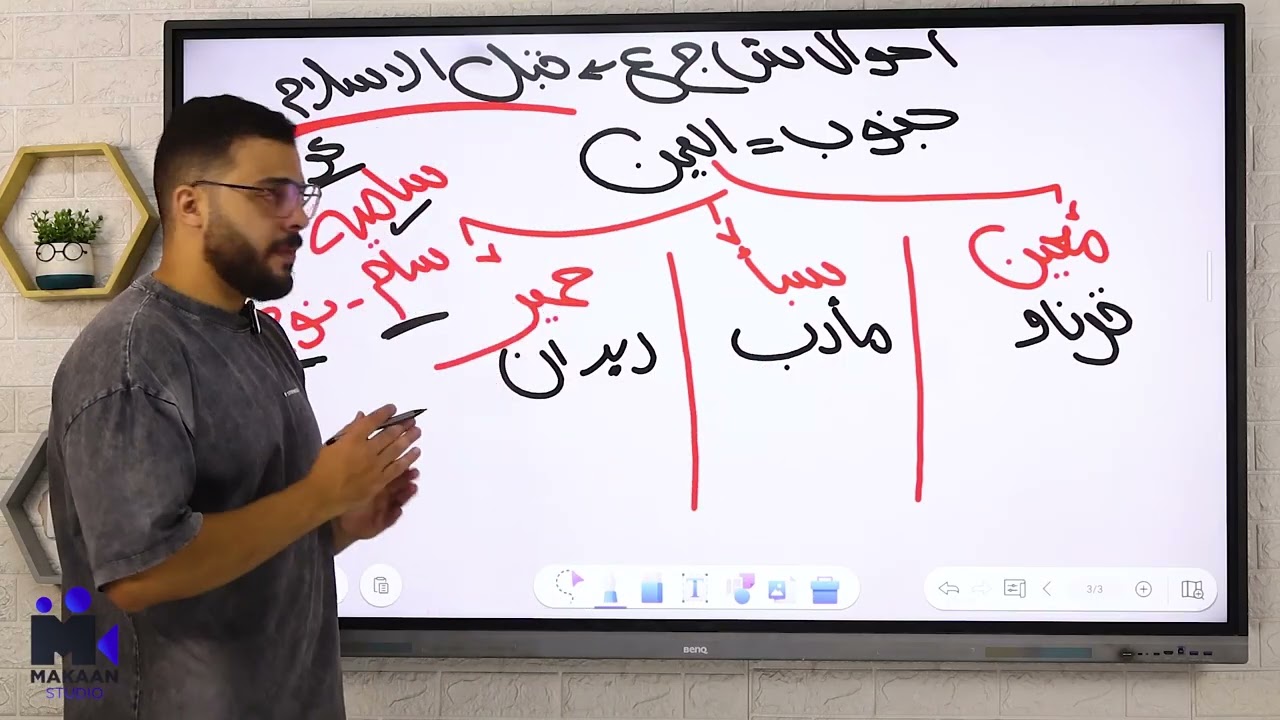 احوال ش ج ع ← قبل الاسلام
جنوب = اليمن
سامية
سام - نوح
معين
سبأ
حمير
قرناو
مأرب
ريدان
3/3
BenQ
MAKAAN
STUDIO